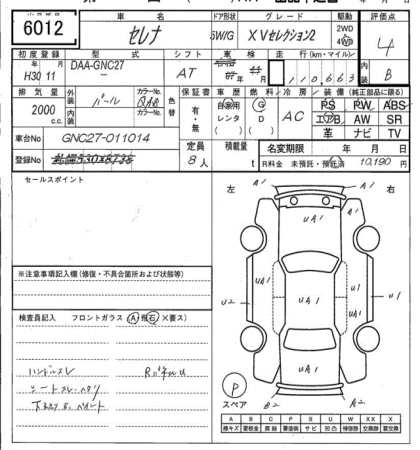 6012
車名 ドア形状 グレード 駆動 評価点
セレナ 5W/G XVセレクション2 2WD 4WD 4
初度登録 型式 シフト 車検 走行(km・マイル) 内装
年 月 H30 11 DAA-GNC27 AT 110,663 B
排気量 外装 カラーNo. 色替 保証書 車歴 燃料 冷房 装備(純正部品に限る)
2000 c.c. パール QAB 有・無 自家用 G AC PS PW ABS
内装 カラーNo. レンタ D エアB AW SR
( ) ( ) 革 ナビ TV
車台No GNC27-011014 定員 積載量 名変期限 年 月 日
登録No 8人 t R料金 未預託・預託済 10,190円
セールスポイント
左 右
A1 A1
UA1
※注意事項記入欄(修復・不具合箇所および状態等)
UA1 UA1 U1
U2 UA1 UA1 U1
検査員記入 フロントガラス(A・飛石・×要ス)
UA1
ハンドルスレ Rパネル U
シートスレ・
P
スペア B2 A2
A B C P S U W X XX
線キズ 要板金 腐蝕 要塗装 サビ 凹凸 補修跡 交換跡 要交換